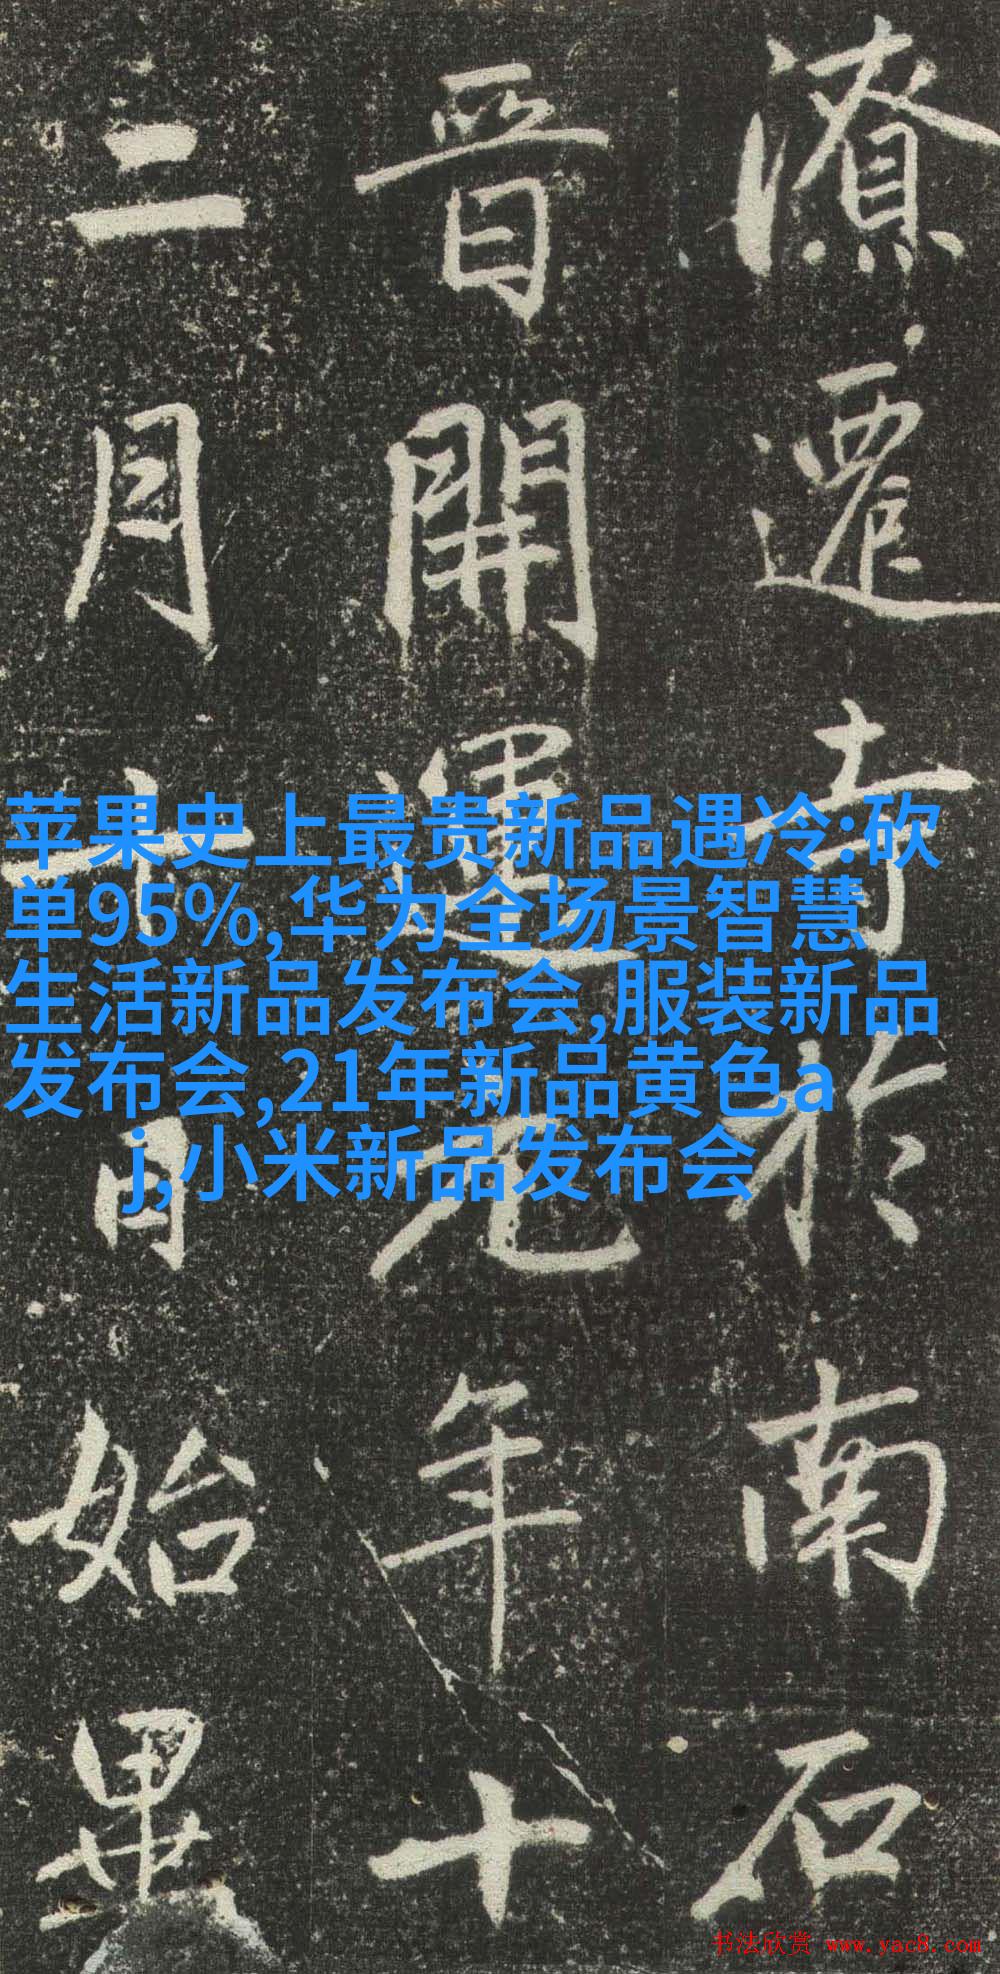 潦遷寺於南石
晉開運元年十
二月十日始畢
苹果史上最贵新品遇冷:砍
单95%,华为全场景智慧
生活新品发布会,服装新品
发布会,21年新品黄色a
j,小米新品发布会
书法欣赏 www.yac8.com